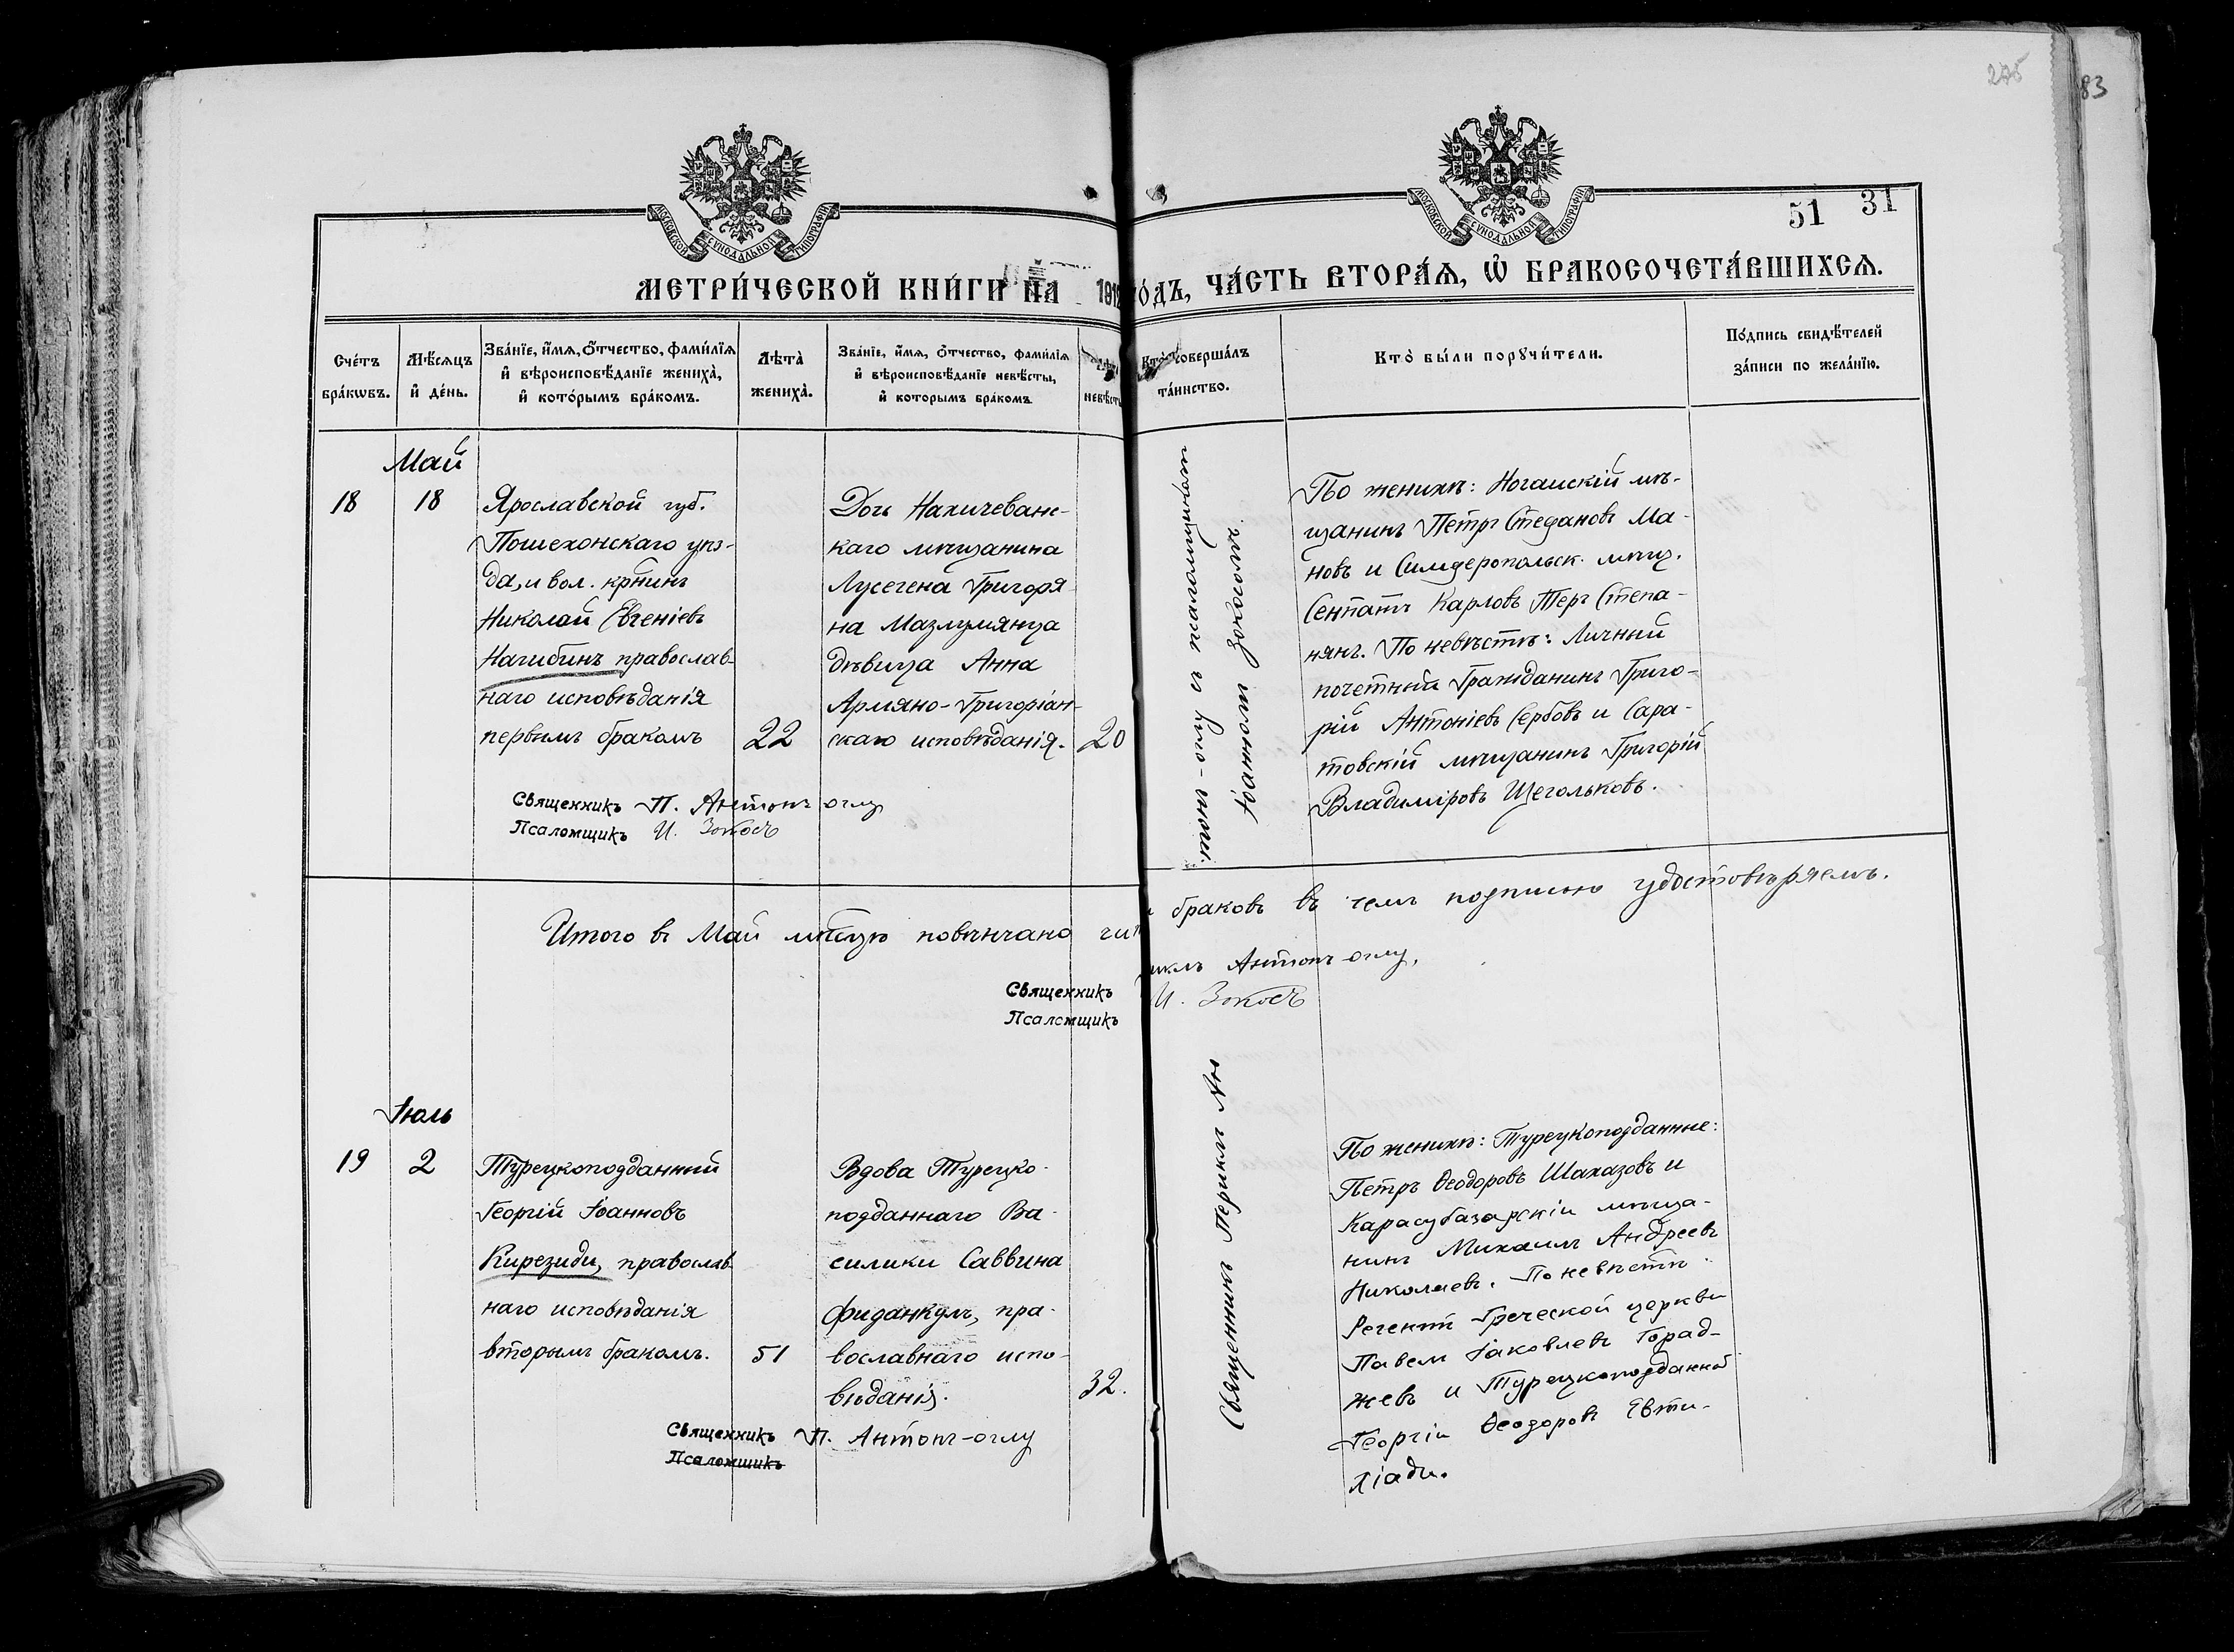 275
83
МОСКОВСКОЙ СѴНОДАЛЬНОЙ ТИПОГРАФІИ
МОСКОВСКОЙ СѴНОДАЛЬНОЙ ТИПОГРАФІИ
51 31
МЕТРИ́ЧЕСКОЙ КНИ́ГИ НА ЧА́СТЬ ВТОРА́Ѧ, Ѡ҆ БРАКОСОЧЕТА́ВШИХСѦ.
Сче́тъ бра́кѡвъ.
Мѣ́сѧцъ и҆ де́нь.
Зва́нїе, и҆́мѧ, ѻ҆́тчество, фами́лїѧ и҆ вѣроисповѣ́данїе жениха̀, и҆ кото́рымъ бра́комъ.
Лѣта̀ жениха̀.
Зва́нїе, и҆́мѧ, ѻ҆́тчество, фами́лїѧ и҆ вѣроисповѣ́данїе невѣ́сты, и҆ которымъ бра́комъ
Кто̀ соверша́лъ та́инство.
Кто̀ бы́ли порꙋчи́тели.
По́дпись свидѣ́телей за́писи по жела́нїю.
Май
18
18
Ярославской губ.
Пошехонскаго уѣз-
да, и вол. кр̃нинъ
Николай Евгеніевъ
Нагибинъ православ-
наго исповѣданія
первымъ бракомъ
22
Дочь Нахичеванс-
каго мѣщанина
Лусегена Григоря-
на Мазлумянца
дѣвица Анна
Армяно-Григоріан-
скаго исповѣданія.
20
тонъ-оглу съ псаломщикомъ
Іоанномъ Зокосомъ.
По женихѣ: Ногайскій мѣ-
щанинъ Петръ Стефановъ Ма-
новъ и Симферопольск. мѣщ.
Карловъ Теръ Степа-
нянъ. По невѣстѣ: Личный
почетный Гражданинъ Григо-
рій Антоніевъ Сербовъ и Сара-
товскій мѣщанинъ Григорій
Владиміровъ Щегольковъ.
Священникъ П. Антонъ оглу
Псаломщикъ И. Зокосъ
Итого въ Май мѣсяцѣ повѣнчано браковъ въ чемъ подписью удостовѣряемъ.
Священникъ Антонъ-оглу.
Псаломщикъ И. Зокосъ
Іюль
19
2
Турецкоподданный
Георгій Іоанновъ
Кирезиди, православ-
наго исповѣданія
вторымъ бракомъ.
51
Вдова Турецко-
подданнаго Ва-
силики Саввина
Фиданкулъ, пра-
вославнаго испо-
вѣданія.
32.
Священникъ Периклъ Ан
По женихѣ: Турецкоподданные:
Петръ Ѳеодоровъ Шахазовъ и
Карасубазарскій мѣща-
нинъ Михаилъ Андреевъ
Николаевъ. По невѣстѣ:
Регентъ Греческой церкви
Павелъ Іаковлевъ Горад-
жевъ и Турецкоподданной
Георгій Ѳеодоровъ Евти-
хіади.
Священникъ П. Антонъ-оглу
Псаломщикъ